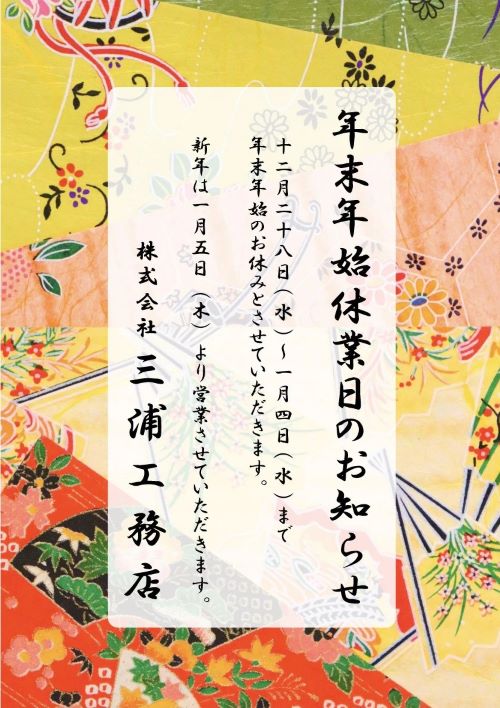 年末年始休業日のお知らせ
十二月二十八日(水)~一月四日(水)まで
年末年始のお休みとさせていただきます。
新年は一月五日(木)より営業させていただきます。
株式会社 三浦工務店